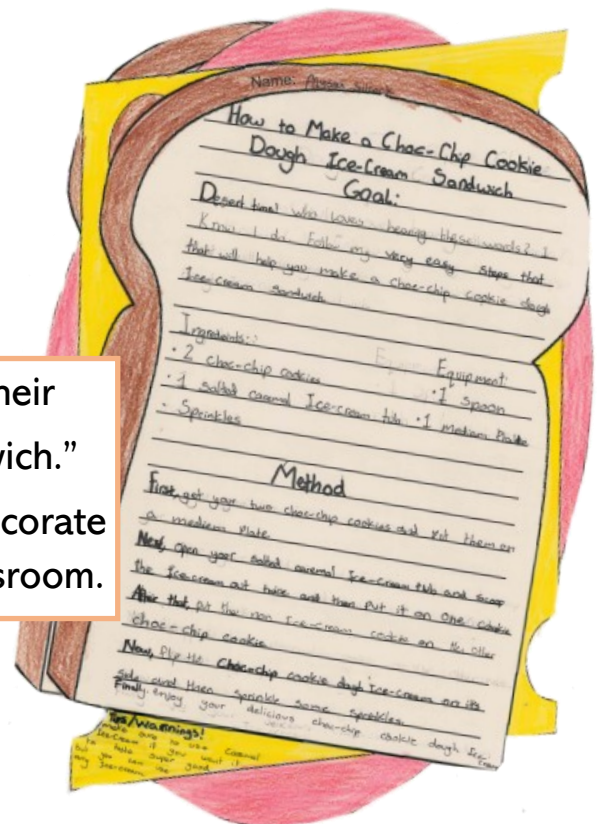 Name:
How to Make a Choc-Chip Cookie
Dough Ice-Cream Sandwich
Goal:
Desert time! who loves hearing these words? I
Know I do. Follow my very easy steps that
that will help you make a choc-chip cookie dough
Ice-cream Sandwich
Ingredients:
• 2 choc-chip cookies
• 1 salted caramel Ice-cream tub
• Sprinkles
Equipment:
• 1 spoon
• 1 medium Plate
Method
First, get your two choc-chip cookies and put them on
a medium Plate
Next, open your salted caramel Ice-cream tub and scoop
the Ice-cream out twice and then put it on one cookie
After that, put the non Ice-cream cookie on the other
choc-chip cookie
Now, flip the choc-chip cookie dough Ice-cream on its
side and then sprinkle some sprinkles.
Finally, enjoy your delicious choc-chip cookie dough Ice-
cream
Tips/Warnings!
make sure to use caramel
Ice-cream if you want it
to taste super good
but you can use
any Ice-cream
heir
wich.”
corate
sroom.